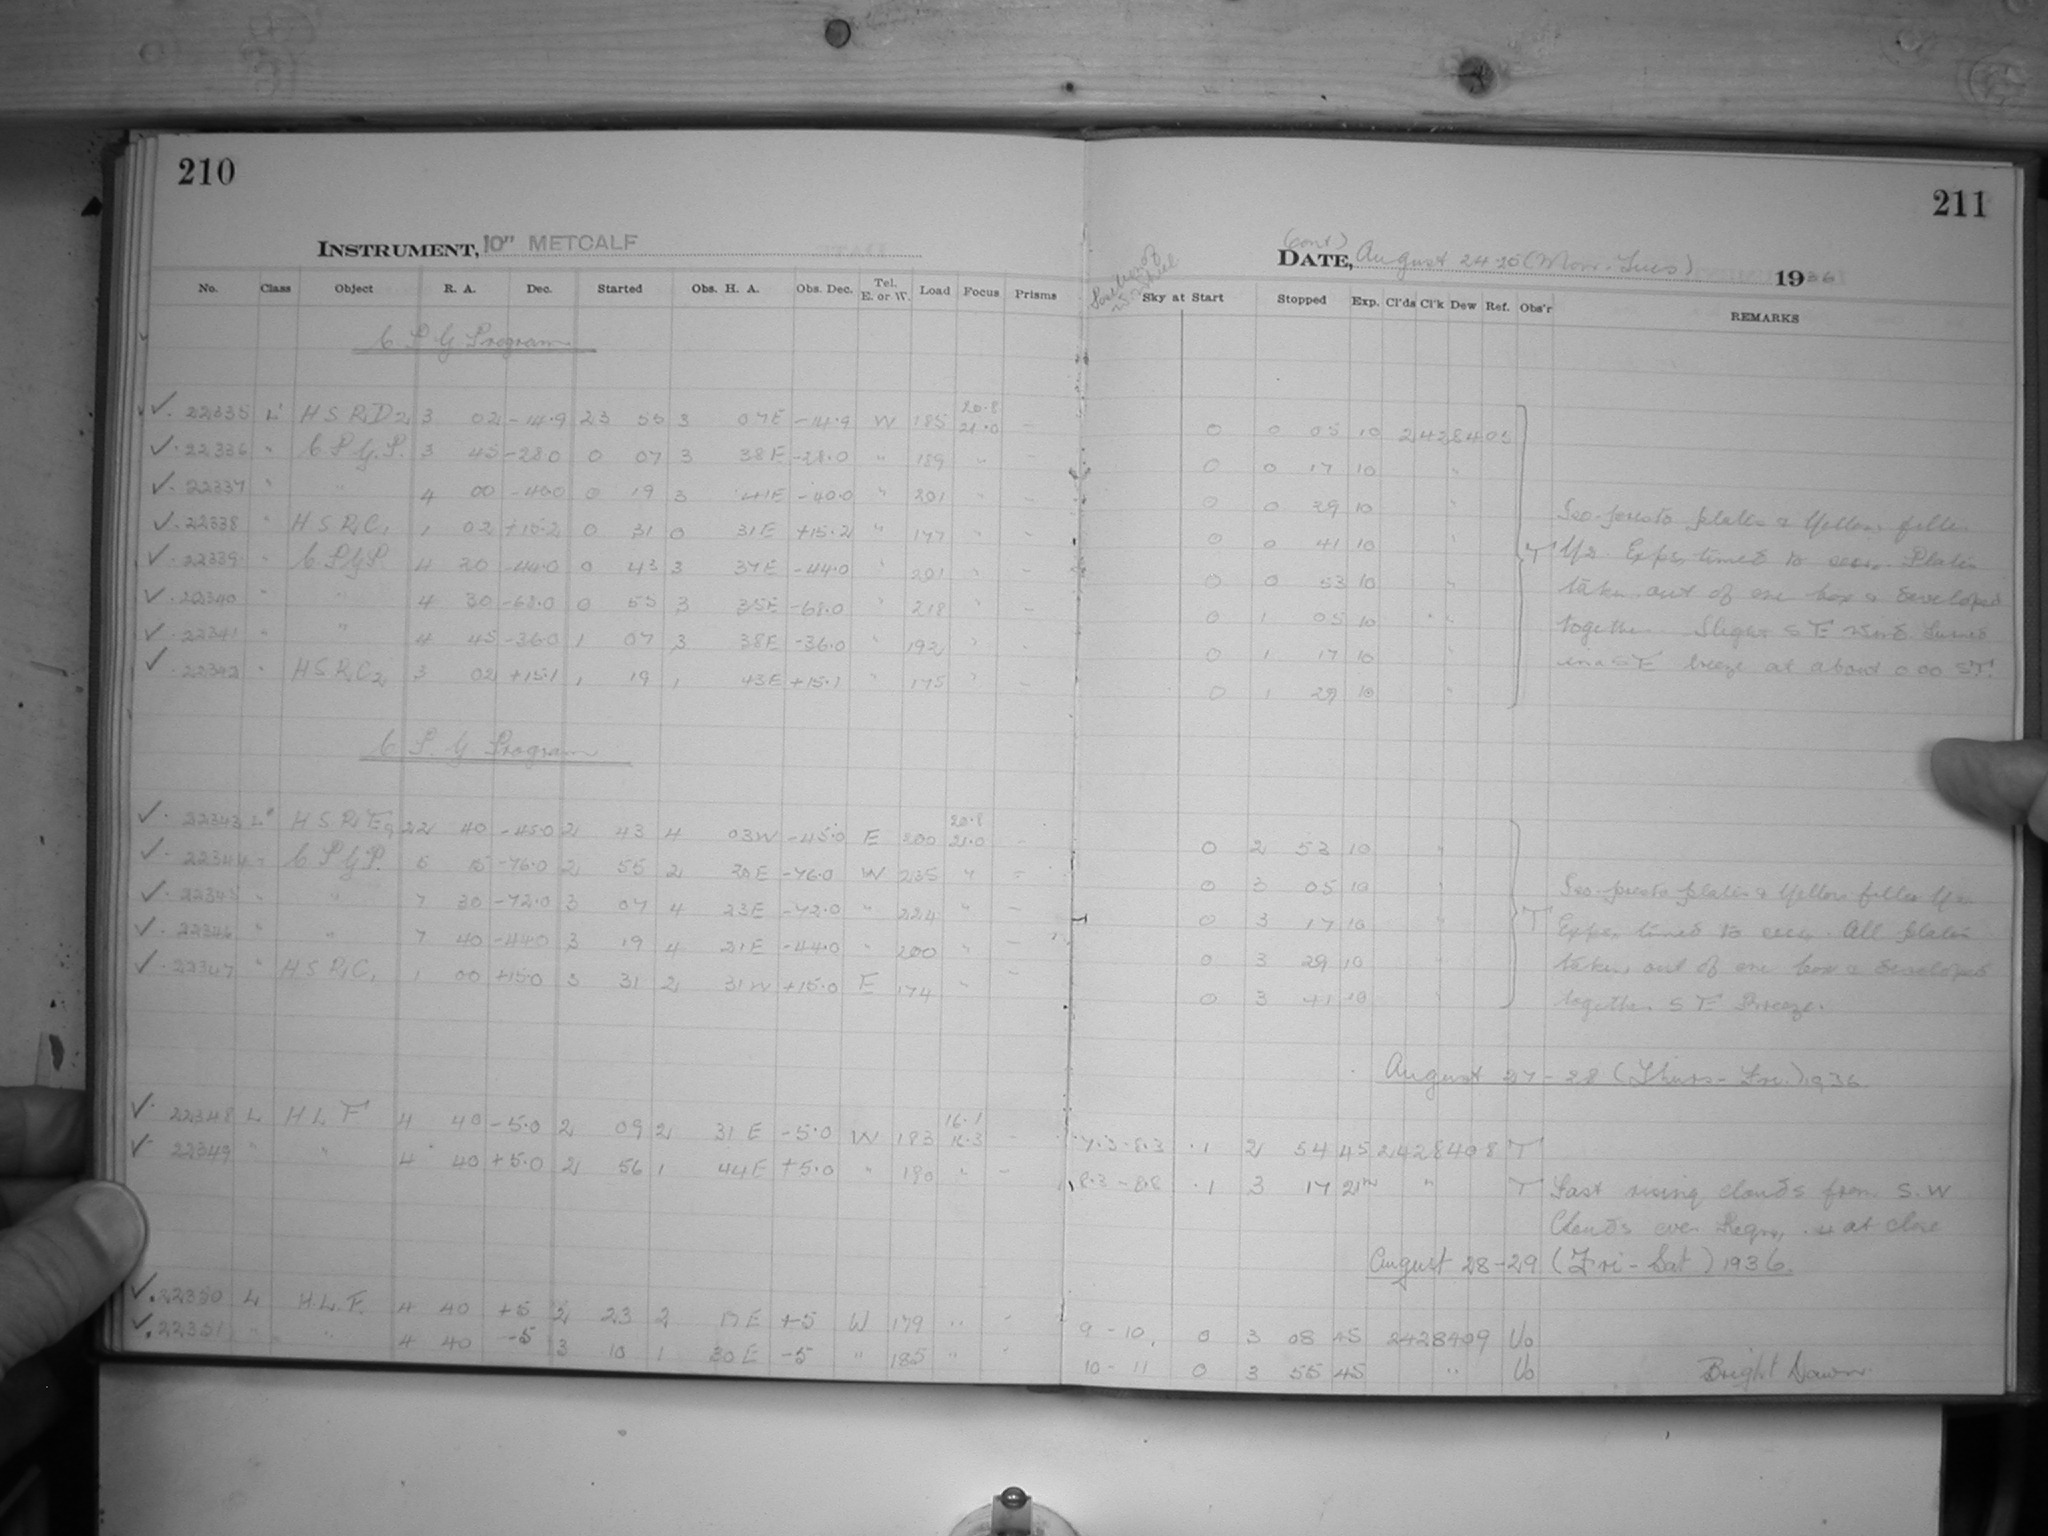 210
INSTRUMENT, 10" METCALF
No. Class Object R. A. Dec. Started Obs. H. A. Obs. Dec. Tel. E. or W. Load Focus Prisms
C P G Program
✓ 22335 L' H S R D2 3 02 -14.9 23 55 3 07E -14.9 W 185 20.8 21.0 -
✓ 22336 " C P G P. 3 45 -28.0 0 07 3 38E -28.0 " 189 " -
✓ 22337 " " 4 00 -40.0 0 19 3 41E -40.0 " 201 " -
✓ 22338 " H S R C1 1 02 +15.2 0 31 0 31E +15.2 " 177 " -
✓ 22339 " C P G P 4 20 -44.0 0 43 3 37E -44.0 " 201 " -
✓ 22340 " " 4 30 -68.0 0 55 3 35E -68.0 " 218 " -
✓ 22341 " " 4 45 -36.0 1 07 3 38E -36.0 " 192 " -
✓ 22342 " H S R C2 3 02 +15.1 1 19 1 43E +15.1 " 175 " -
C P. G Program
✓ 22343 L' H S R E9 22 40 -45.0 2 43 4 03W -45.0 E 200 20.8 21.0 -
✓ 22344 " C P G P. 5 15 -76.0 2 55 2 20E -76.0 W 235 " -
✓ 22345 " " 7 30 -72.0 3 07 4 23E -72.0 " 224 " -
✓ 22346 " " 7 40 -44.0 3 19 4 21E -44.0 " 200 " -
✓ 22347 " H S R C1 1 00 +15.0 3 31 2 31W +15.0 E 174 " -
✓ 22348 L H L F 4 40 -5.0 2 09 2 31 E -5.0 W 183 16.1 -
✓ 22349 " " 4 40 +5.0 2 56 1 44E +5.0 " 190 " -
✓ 22350 L H. L. F. 4 40 +5 2 23 2 17E +5 W 179 " -
✓ 22351 " " 4 40 -5 3 10 1 30E -5 " 185 " "
211
(cont)
DATE, August 24-25 (Mon.-Tues) 1936
Sky at Start Stopped Exp. Cl'ds Cl'k Dew Ref. Obs'r REMARKS
0 0 05 10 2428405
0 0 17 10 "
0 0 29 10 "
0 0 41 10 "
0 0 53 10 "
0 1 05 10 "
0 1 17 10 "
0 1 29 10 "
T
Iso-presto plates & Yellow filter
Y2. Expos timed to secs. Plates
taken out of one box & developed
together. Slight S E wind turned
in a SE breeze at about 0 00 ST.
0 2 53 10 "
0 3 05 10 "
0 3 17 10 "
0 3 29 10 "
0 3 41 10 "
T
Iso-presto plates & Yellow filter Y2
Expos timed to secs. All plates
taken out of one box & developed
together S E Breeze.
August 27-28 (Thurs-Fri.) 1936
7.3-8.3 .1 2 54 45 2428408 T
8.3-8.8 .1 3 17 21m " T Fast rising clouds from S.W
Clouds over Region, .4 at close
August 28-29 (Fri-Sat) 1936.
9-10. 0 3 08 45 2428409 Uo
10-11 0 3 55 45 " Uo Bright Dawn.